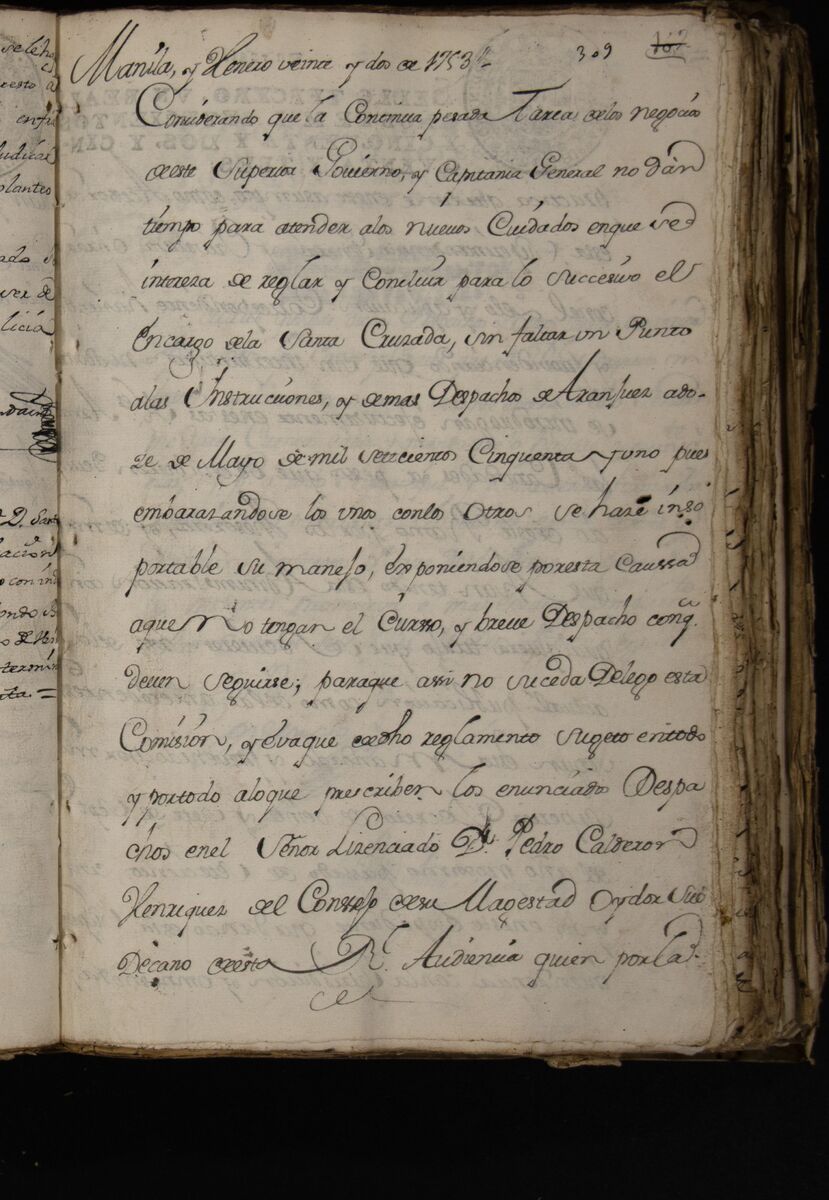 Manila, y Henero veinte y dos de 1753„
309
167
Considerando que la Continua pesada Tarea delos negocios
deeste Superior Govierno, y Capitania General no dàn
tiempo para atender alos nuevos Cuidados enque se
intereza de reglar y Concluir para lo succesivo el
encargo dela Santa Cruzada, sin faltar un Punto
alas Instrucciones, y demas Despachos de Aranjuez ado-
ze de Mayo de mil setecientos Cinquenta y uno pues
embarazandose los unos conlos otros se haze inso
portable su manejo, exponiendose poresta Caussa
aque No tengan el Cursso, y breve Despacho conq.
deven seguirse; paraque assi no suceda Delego esta
Comision, y evaque dedho reglamento sugeto entodo
y portodo aloque prescriben los enunciados Despa
chos enel Señor Lizenciado Dn. Pedro Calderon
Henriquez del Conssejo desu Magestad Oydor Sub
Decano deesta Rl. Audiencia quien porla